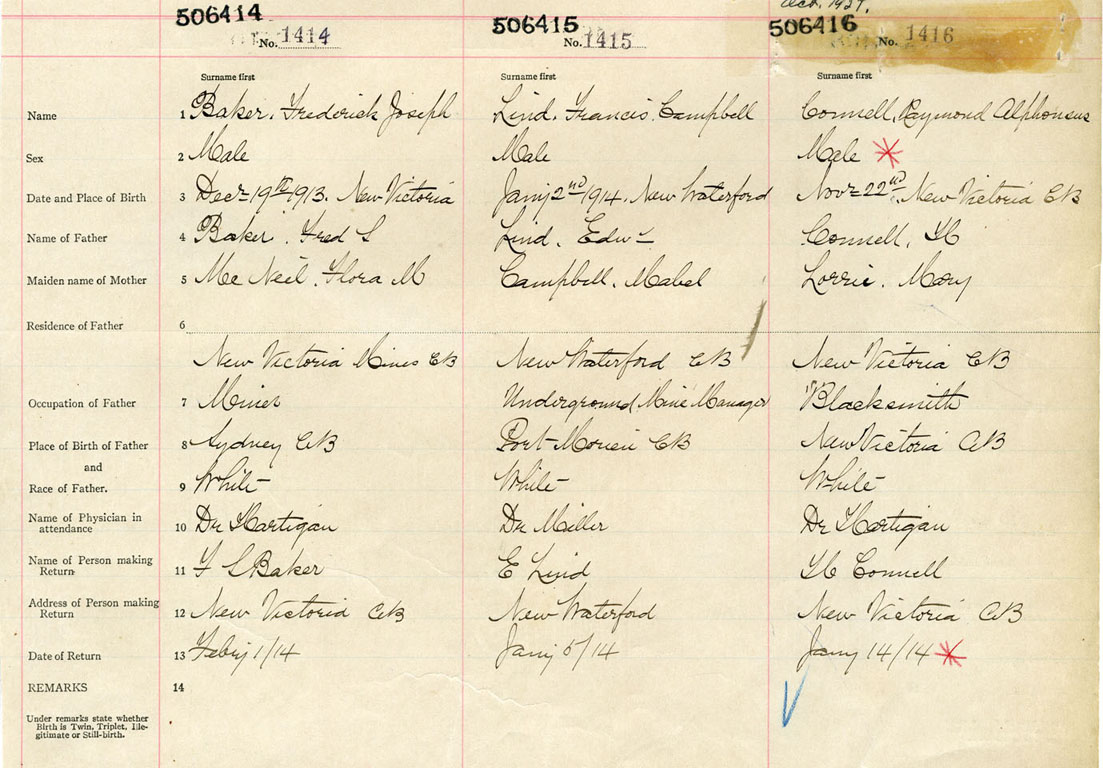 Oct. 1927.
506414 506415 506416
No. 1414 No. 1415 No. 1416
Surname first Surname first Surname first
Name 1 Baker, Frederick Joseph Lind, Francis Campbell Connell, Raymond Alphonsus
Sex 2 Male Male Male
Date and Place of Birth 3 Decr 19th 1913. New Victoria Jany 2nd 1914. New Waterford Novr 22nd, New Victoria CB
Name of Father 4 Baker, Fred S Lind, Edwd Connell, H
Maiden name of Mother 5 Mc Neil, Flora M Campbell, Mabel Lorrie, Mary
Residence of Father 6
New Victoria Mines CB New Waterford CB New Victoria CB
Occupation of Father 7 Miner Underground Mine Manager Blacksmith
Place of Birth of Father 8 Sydney CB Port Morien CB New Victoria CB
and
Race of Father. 9 White White White
Name of Physician in
attendance 10 Dr Hartigan Dr Miller Dr Hartigan
Name of Person making
Return 11 F S Baker E Lind H Connell
Address of Person making
Return 12 New Victoria CB New Waterford New Victoria CB
Date of Return 13 Febry 1/14 Jany 5/14 Jany 14/14
REMARKS 14
Under remarks state whether
Birth is Twin, Triplet, Ille-
gitimate or Still-birth.